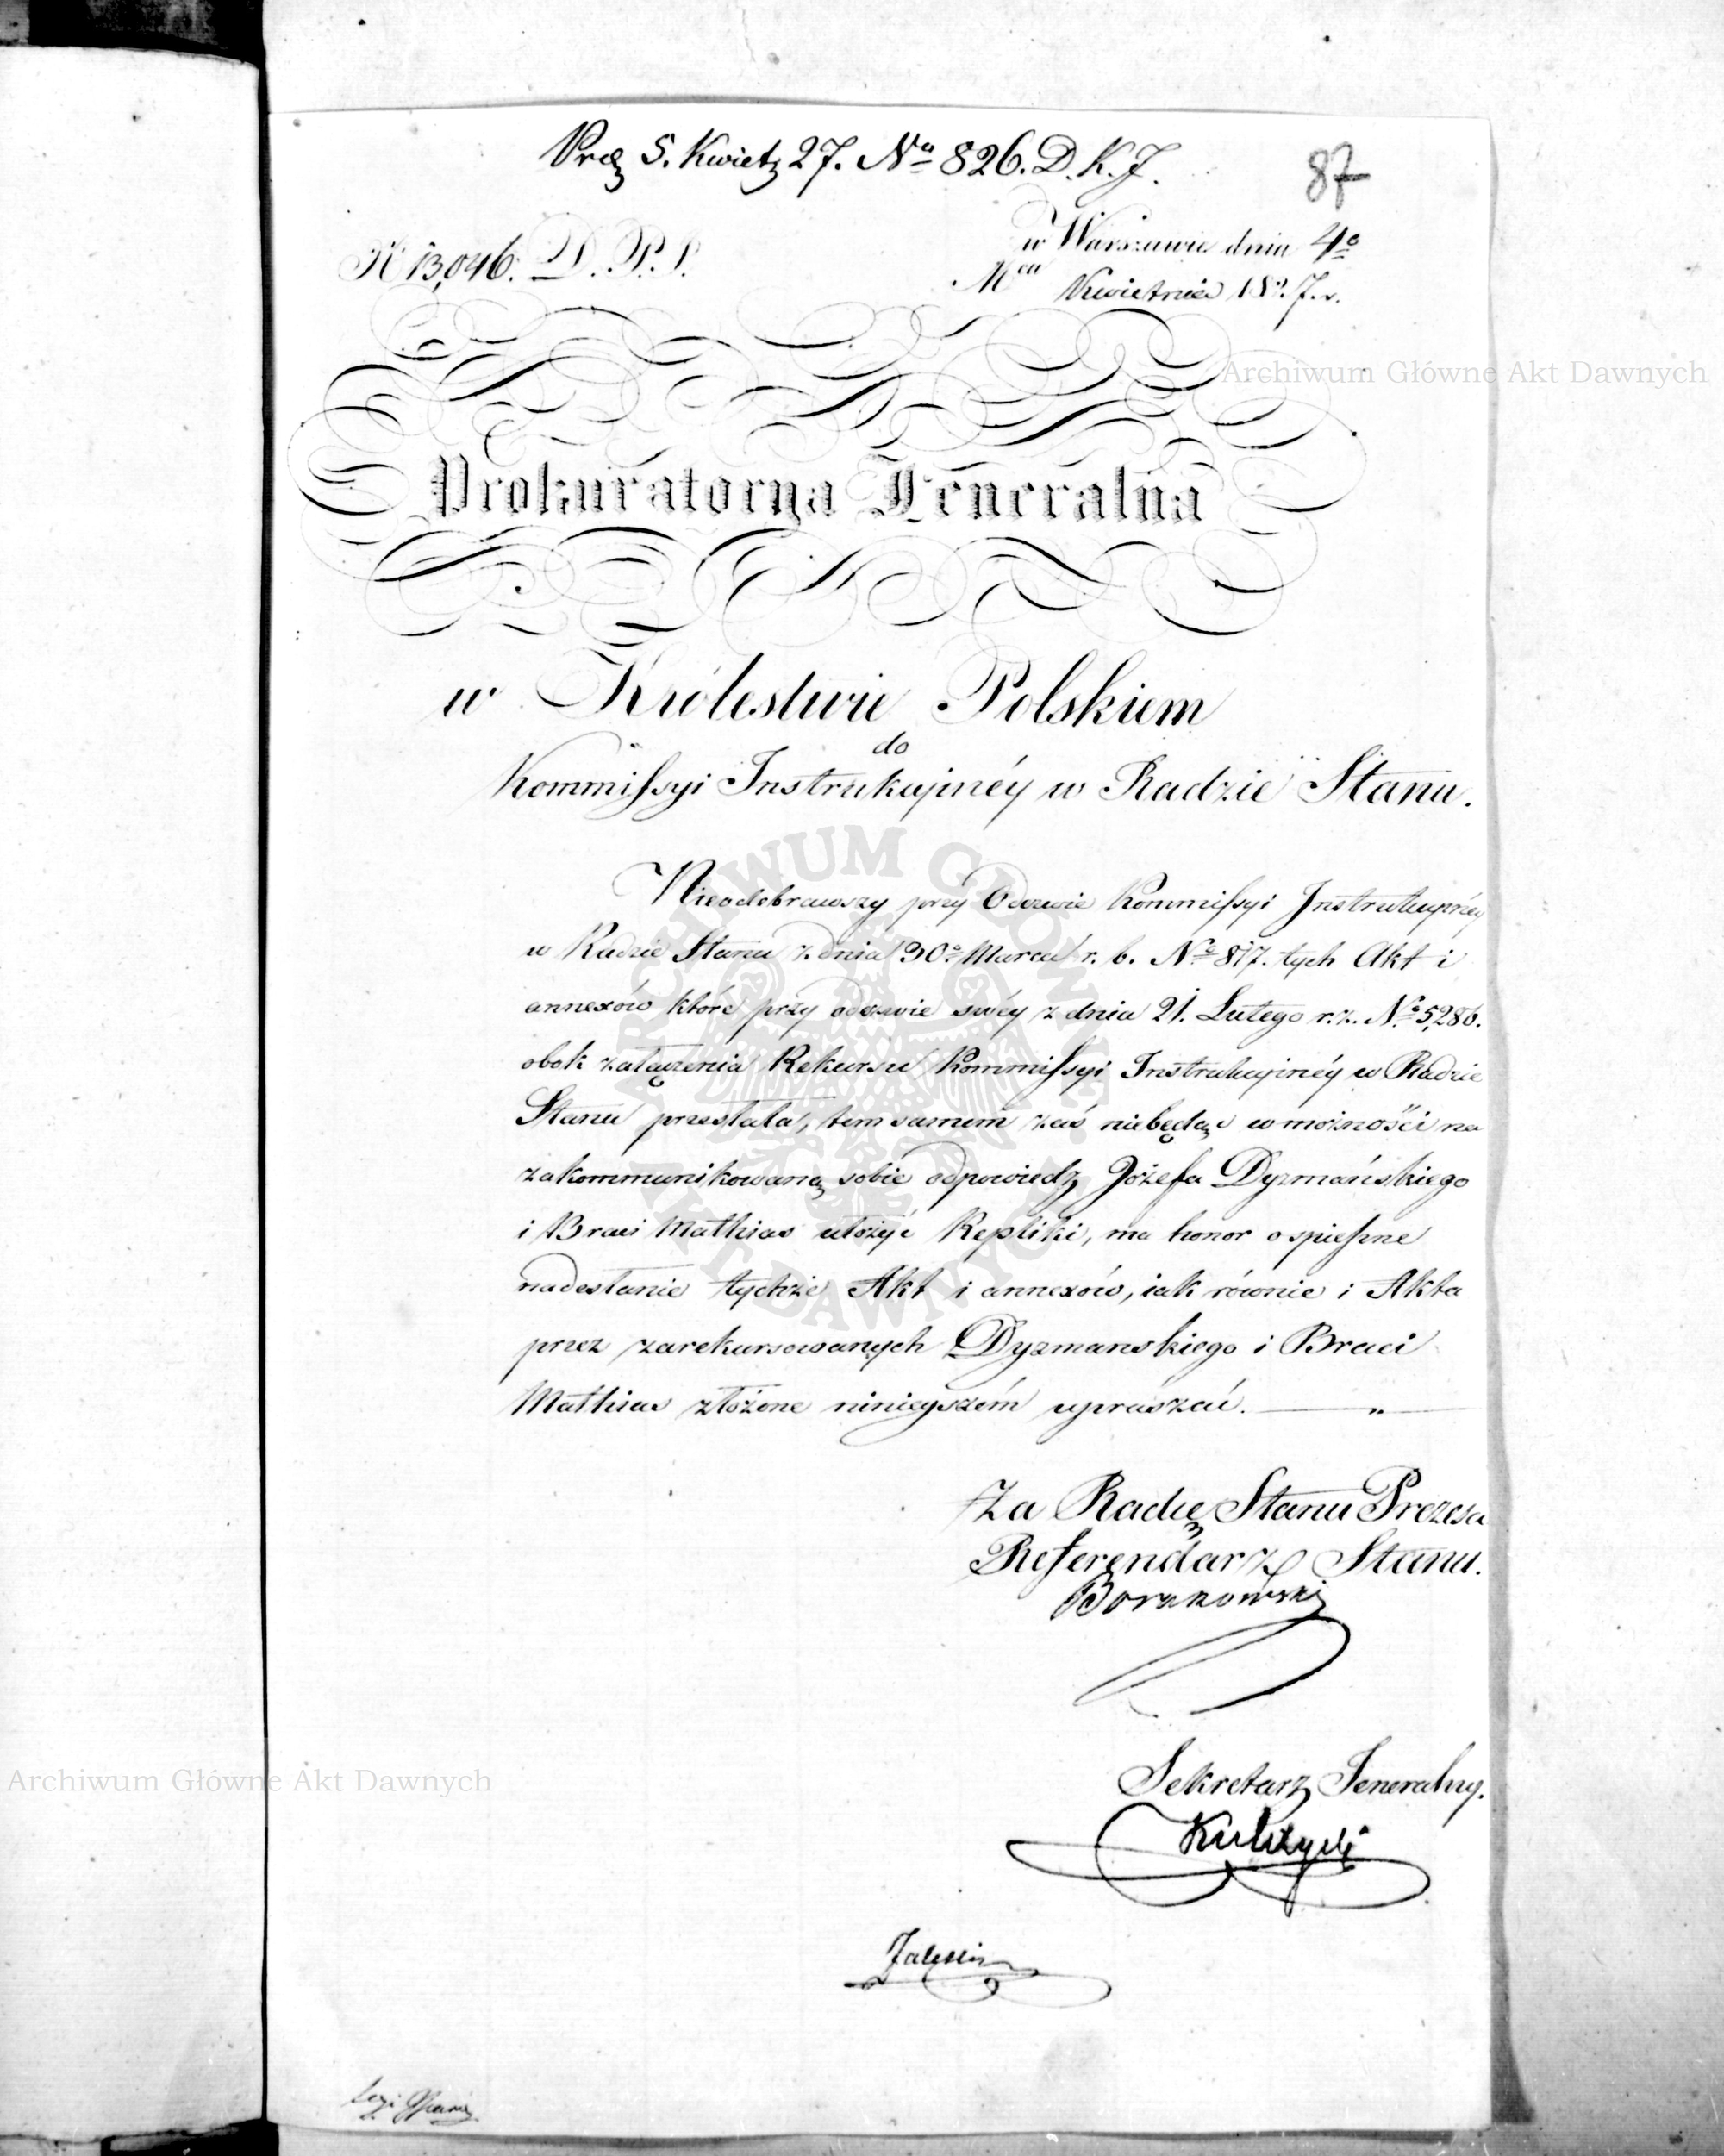 Prez 5. Kwietz 27. No 826. D. K. J.
87
w Warszawie dnia 4o
N 13,046. D. P. P.
Mca Kwietnia 1827. r.
Archiwum Główne Akt Dawnych
Prokuratorya Jeneralna
w Królestwie Polskiem
do
Kommissyi Instrukcyinéy w Radzie Stanu.
Nieodebrawszy przy Odezwie Kommissyi Instrukcyinéy
w Radzie Stanu z dnia 30o Marca r. b. No 817. tych Akt i
annexów które przy odezwie swéy z dnia 21. Lutego r. z. No 5,286.
obok załączenia Rekursu Kommissyi Instrukcyinéy w Radzie
Stanu przesłała, tem samem zaś niebędąc w możności na
zakommunikowaną sobie odpowiedz Józefa Dyzmańskiego
i Braci Mathias ułożyć Repliki, ma honor o spieszne
nadesłanie tychże Akt i annexów, iak równie i Akta
przez zarekursowanych Dyzmanskiego i Braci
Mathias złożone ninieyszém upraszać. — „ —
Za Radcę Stanu Prezesa
Referendarz Stanu.
Borakowski
Archiwum Główne Akt Dawnych
Sekretarz Jeneralny.
Kulczycki
ARCHIWUM GŁÓWNE AKT DAWNYCH